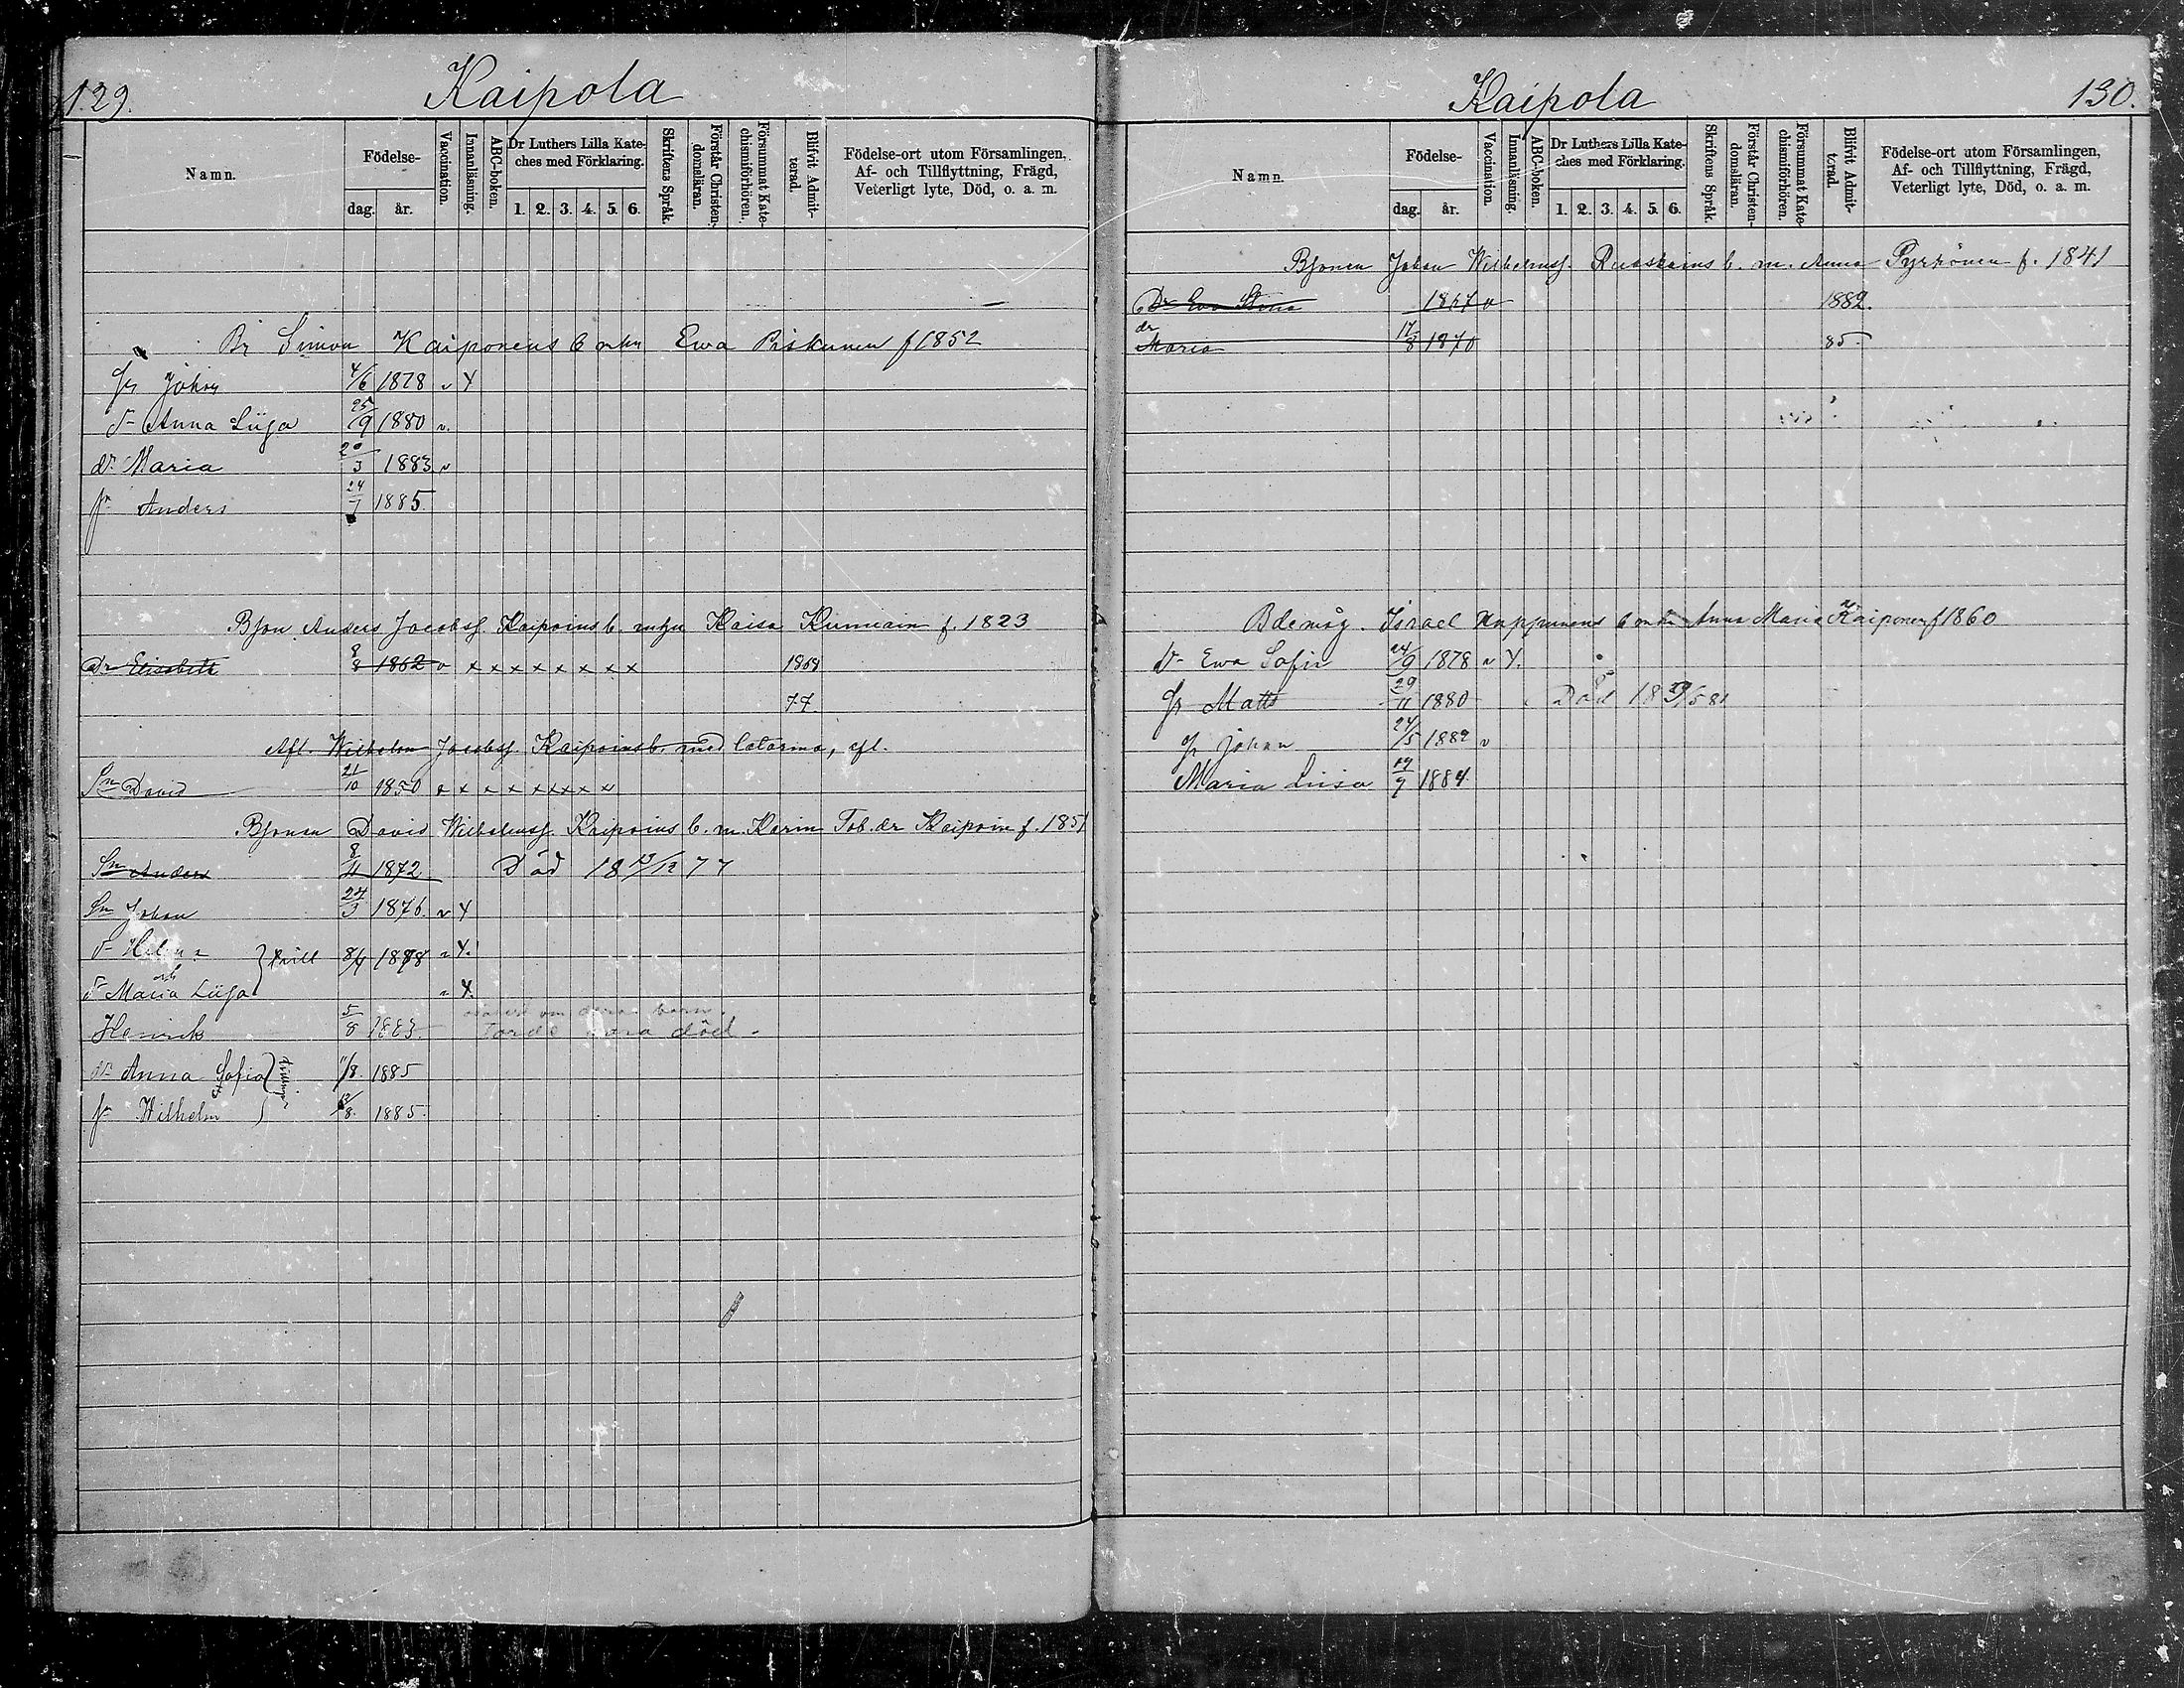 129.
Kaipola
Namn.
Födelse-
dag.
år.
Vaccination.
Innanläsning.
ABC-boken.
Dr Luthers Lilla Kate-
ches med Förklaring.
1. 2. 3. 4. 5. 6.
Skriftens Språk.
Förstår Christen-
domsläran.
Försummat Kate-
chismiförhören.
Blifvit Admit-
terad.
Födelse-ort utom Församlingen,
Af- och Tillflyttning, Frägd,
Veterligt lyte, Död, o. a. m.
Br Simon Kaiponens b m hu Ewa Piskunen f 1852
Johan 4/6 1878 v Y
Anna Liisa 25/9 1880 v.
dr Maria 20/3 1883 v
Anders 24/7 1885.
Bjon Anders Jacobsf. Kaipoins b. m hu Kaisa f. 1823
Dr Elisabeth 8/8 1862 v x x x x x x x x 1869
77
Afl. Wilhelm Jacobsf. Kaipoins b. med Catarina, afl.
Sn David 21/10 1850 v x x x x x x x x
Bjonen David Wilhelmsf. Kaipoins b. m. Karin Tob. dr Kaipoin f. 1851
Sn Anders 8/4 1872 Död 18 13/12 77
Sn Johan 24/3 1876. v Y
Helena tvill 8/4 1878 v Y.
och
Maria Liisa v Y.
om deras barn.
Henrik 5/8 1883. Torde vara död.
dr Anna Sofia 11/8. 1885
Wilhelm 12/8. 1885.
Kaipola
130.
Namn.
Födelse-
dag.
år.
Vaccination.
Innanläsning.
ABC-boken.
Dr Luthers Lilla Kate-
ches med Förklaring.
1. 2. 3. 4. 5. 6.
Skriftens Språk.
Förstår Christen-
domsläran.
Försummat Kate-
chismiförhören.
Blifvit Admit-
terad.
Födelse-ort utom Församlingen,
Af- och Tillflyttning, Frägd,
Veterligt lyte, Död, o. a. m.
Bjonen Johan Wilhelmsf. Ruoskoins b. m. Anna Pyrhönen f. 1841
Dr Eva Stina 1867 v 1882.
dr
Maria 17/8 1870 85.
Bdemåg. Israel b m hu Anna Maria Kaiponen f 1860
Ewa Sofia 24/9 1878 v Y.
Matts 29/11 1880 Död 18 29/5 81
Johan 24/5 1882 v
Maria Liisa 19/7 1884.